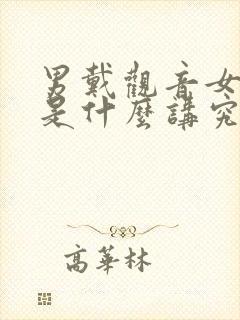 男戴觀音女
是什麼講究
高華林